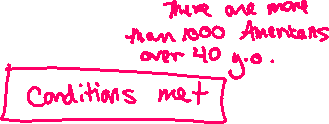 There are more
than 1000 Americans
over 40 y.o.
Conditions met